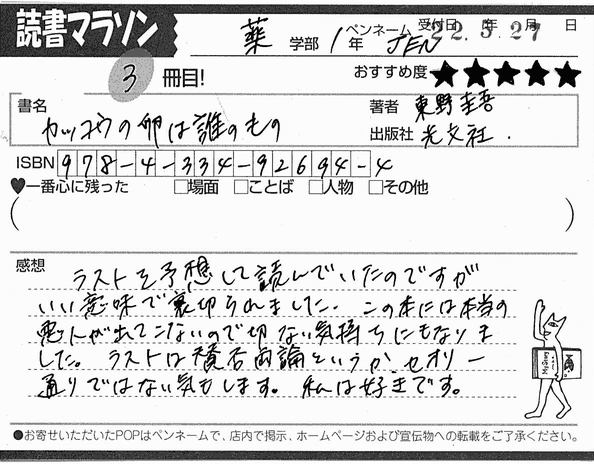 読書マラソン
薬 学部 1年 ペンネーム JEN 受付日 年 月 日
22.5.27
3 冊目! おすすめ度 ★★★★★
書名 著者 東野圭吾
カッコウの卵は誰のもの 出版社 光文社.
ISBN 978-4-334-92694-4
♥一番心に残った □場面 □ことば □人物 □その他
( )
感想
ラストを予想して読んでいたのですが
いい意味で裏切られました. この本には本当の
悪人が出てこないので切ない気持ちにもなりま
した。ラストは賛否両論というか、セオリー
通りではない気もします。私は好きです。
●お寄せいただいたPOPはペンネームで、店内で掲示、ホームページおよび宣伝物への転載をご了承ください。